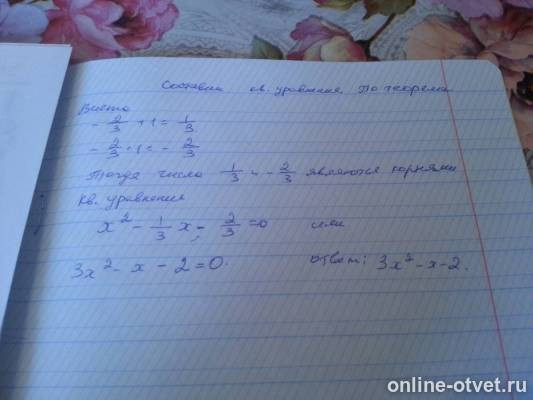 Составим кв. уравнение по теореме
Виета
- 2/3 + 1 = 1/3
- 2/3 · 1 = - 2/3
Тогда числа 1/3 и - 2/3 являются корнями
кв. уравнения
x² - 1/3 x - 2/3 = 0 или
3x² - x - 2 = 0. Ответ: 3x² - x - 2.
online-otvet.ru